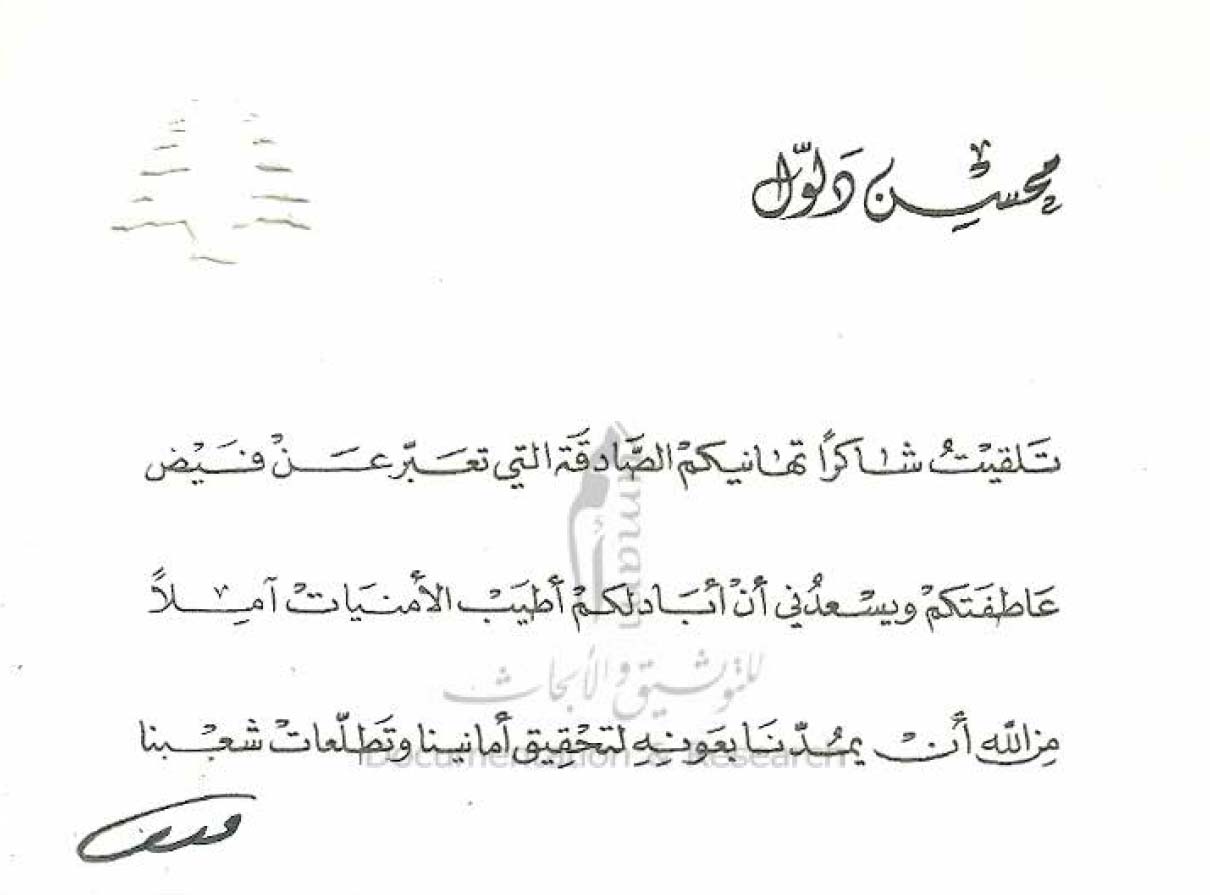 محسن دلّول
تلقيتُ شاكرًا تهانيكم الصَّادقَة التي تعبّر عَنْ فيْض
عَاطفَتكمْ ويسْعدُني أنْ أبَادلكمْ أطيَبْ الأمنيَات آملاً
مِن الله أنْ يمُدّنَا بعَونِهِ لتحْقِيق أمانينا وتَطلّعات شعْبنا
Umam
أمم
للتوثيق والأبحاث
Documentation & Research